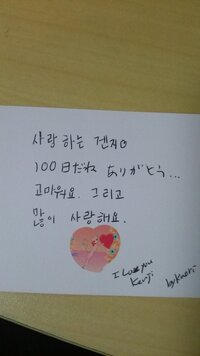 사랑하는 겐지
100日だね ありがとう...
고마워요. 그리고
많이 사랑해요.
I Love you
Kenji
by Kaori